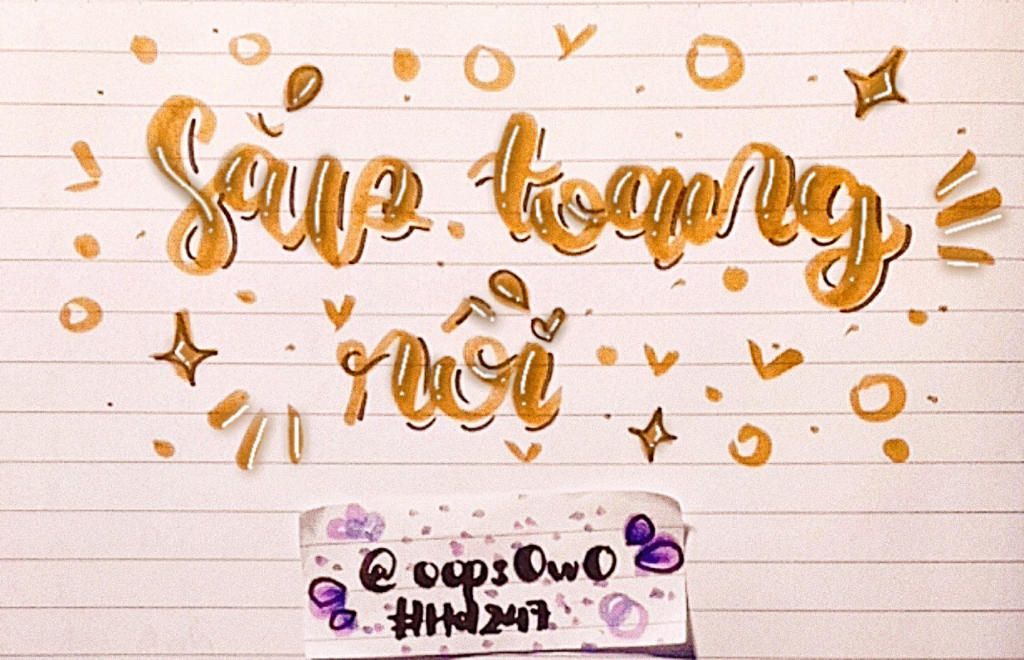 Sắp toang
rồi
@oopsOwO
#Hd247